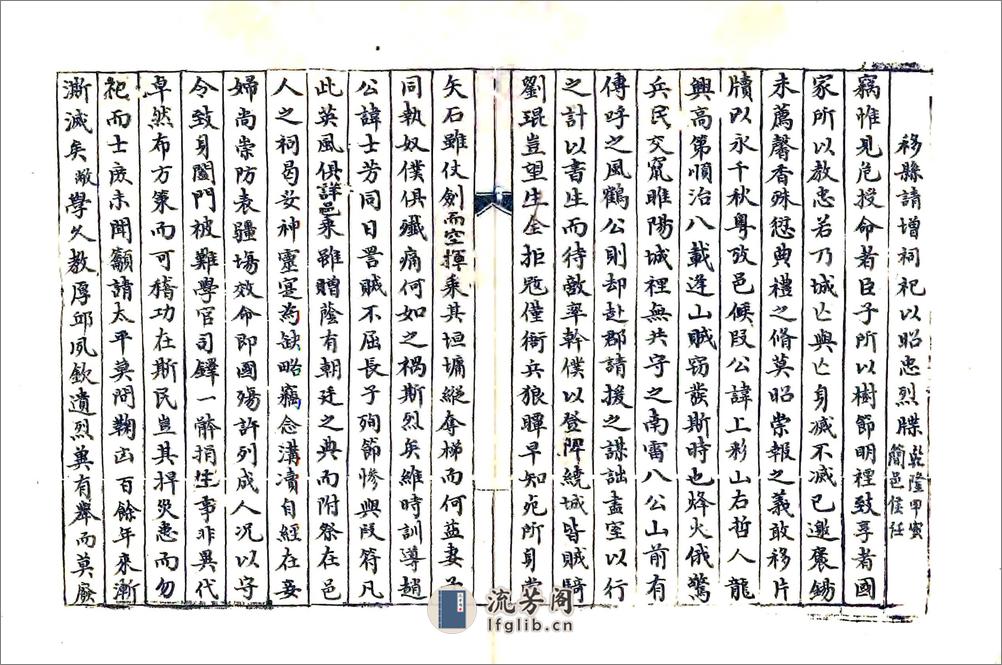 移縣請增祠祀以昭忠烈牒乾隆甲寅
簡邑侯任
竊惟見危授命者臣子所以樹節明禋致享者國
家所以教忠若乃城亡與亡身滅不滅已邀褒錫
未薦馨香殊愆典禮之脩莫昭崇報之義敢移片
牘以永千秋粵攷邑候段公諱上彩山右哲人龍
興高第順治八載逢山賊窃發斯時也烽火俄驚
兵民交窜睢陽城裡無共守之南雷八公山前有
傳呼之風鶴公則却赴郡請援之謀詘盡室以行
之計以書生而待敵率幹僕以登陴繞城皆賊騎
劉琨豈望生全拒寇僅衙兵狼瞫早知死所身當
矢石雖仗劍而空揮乘其垣墉縱奪梯而何益妻子
同執奴僕俱殲痛何如之禍斯烈矣維時訓導趙
公諱士芳同日詈賊不屈長子殉節慘與段符凡
此英風俱詳邑乘雖贈蔭有朝廷之典而附祭在邑
人之祠曷妥神靈寔為缺畧竊念溝瀆自經在妾
婦尚崇防表疆場效命即國殤許列成人况以守
令致身闔門被難學官司鐸一體捐生事非異代
卓然布方策而可稽功在斯民豈其捍災患而勿
祀而士庶未聞籲請太平莫問鞠凶百餘年來漸
澌滅矣敝學久教厚邱夙欽遺烈冀有舉而莫廢
流芳阁
lfglib.cn